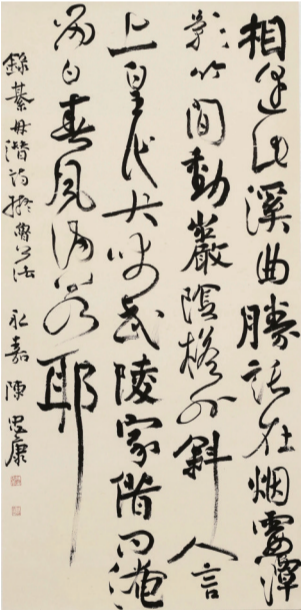 相逢此溪曲勝託在烟霞潭
影竹間動巖陰檐外斜人言
上皇代犬吠武陵家借問淹
留日春風滿若耶
録綦毋潛詩擬魯公法 永嘉陳忠康